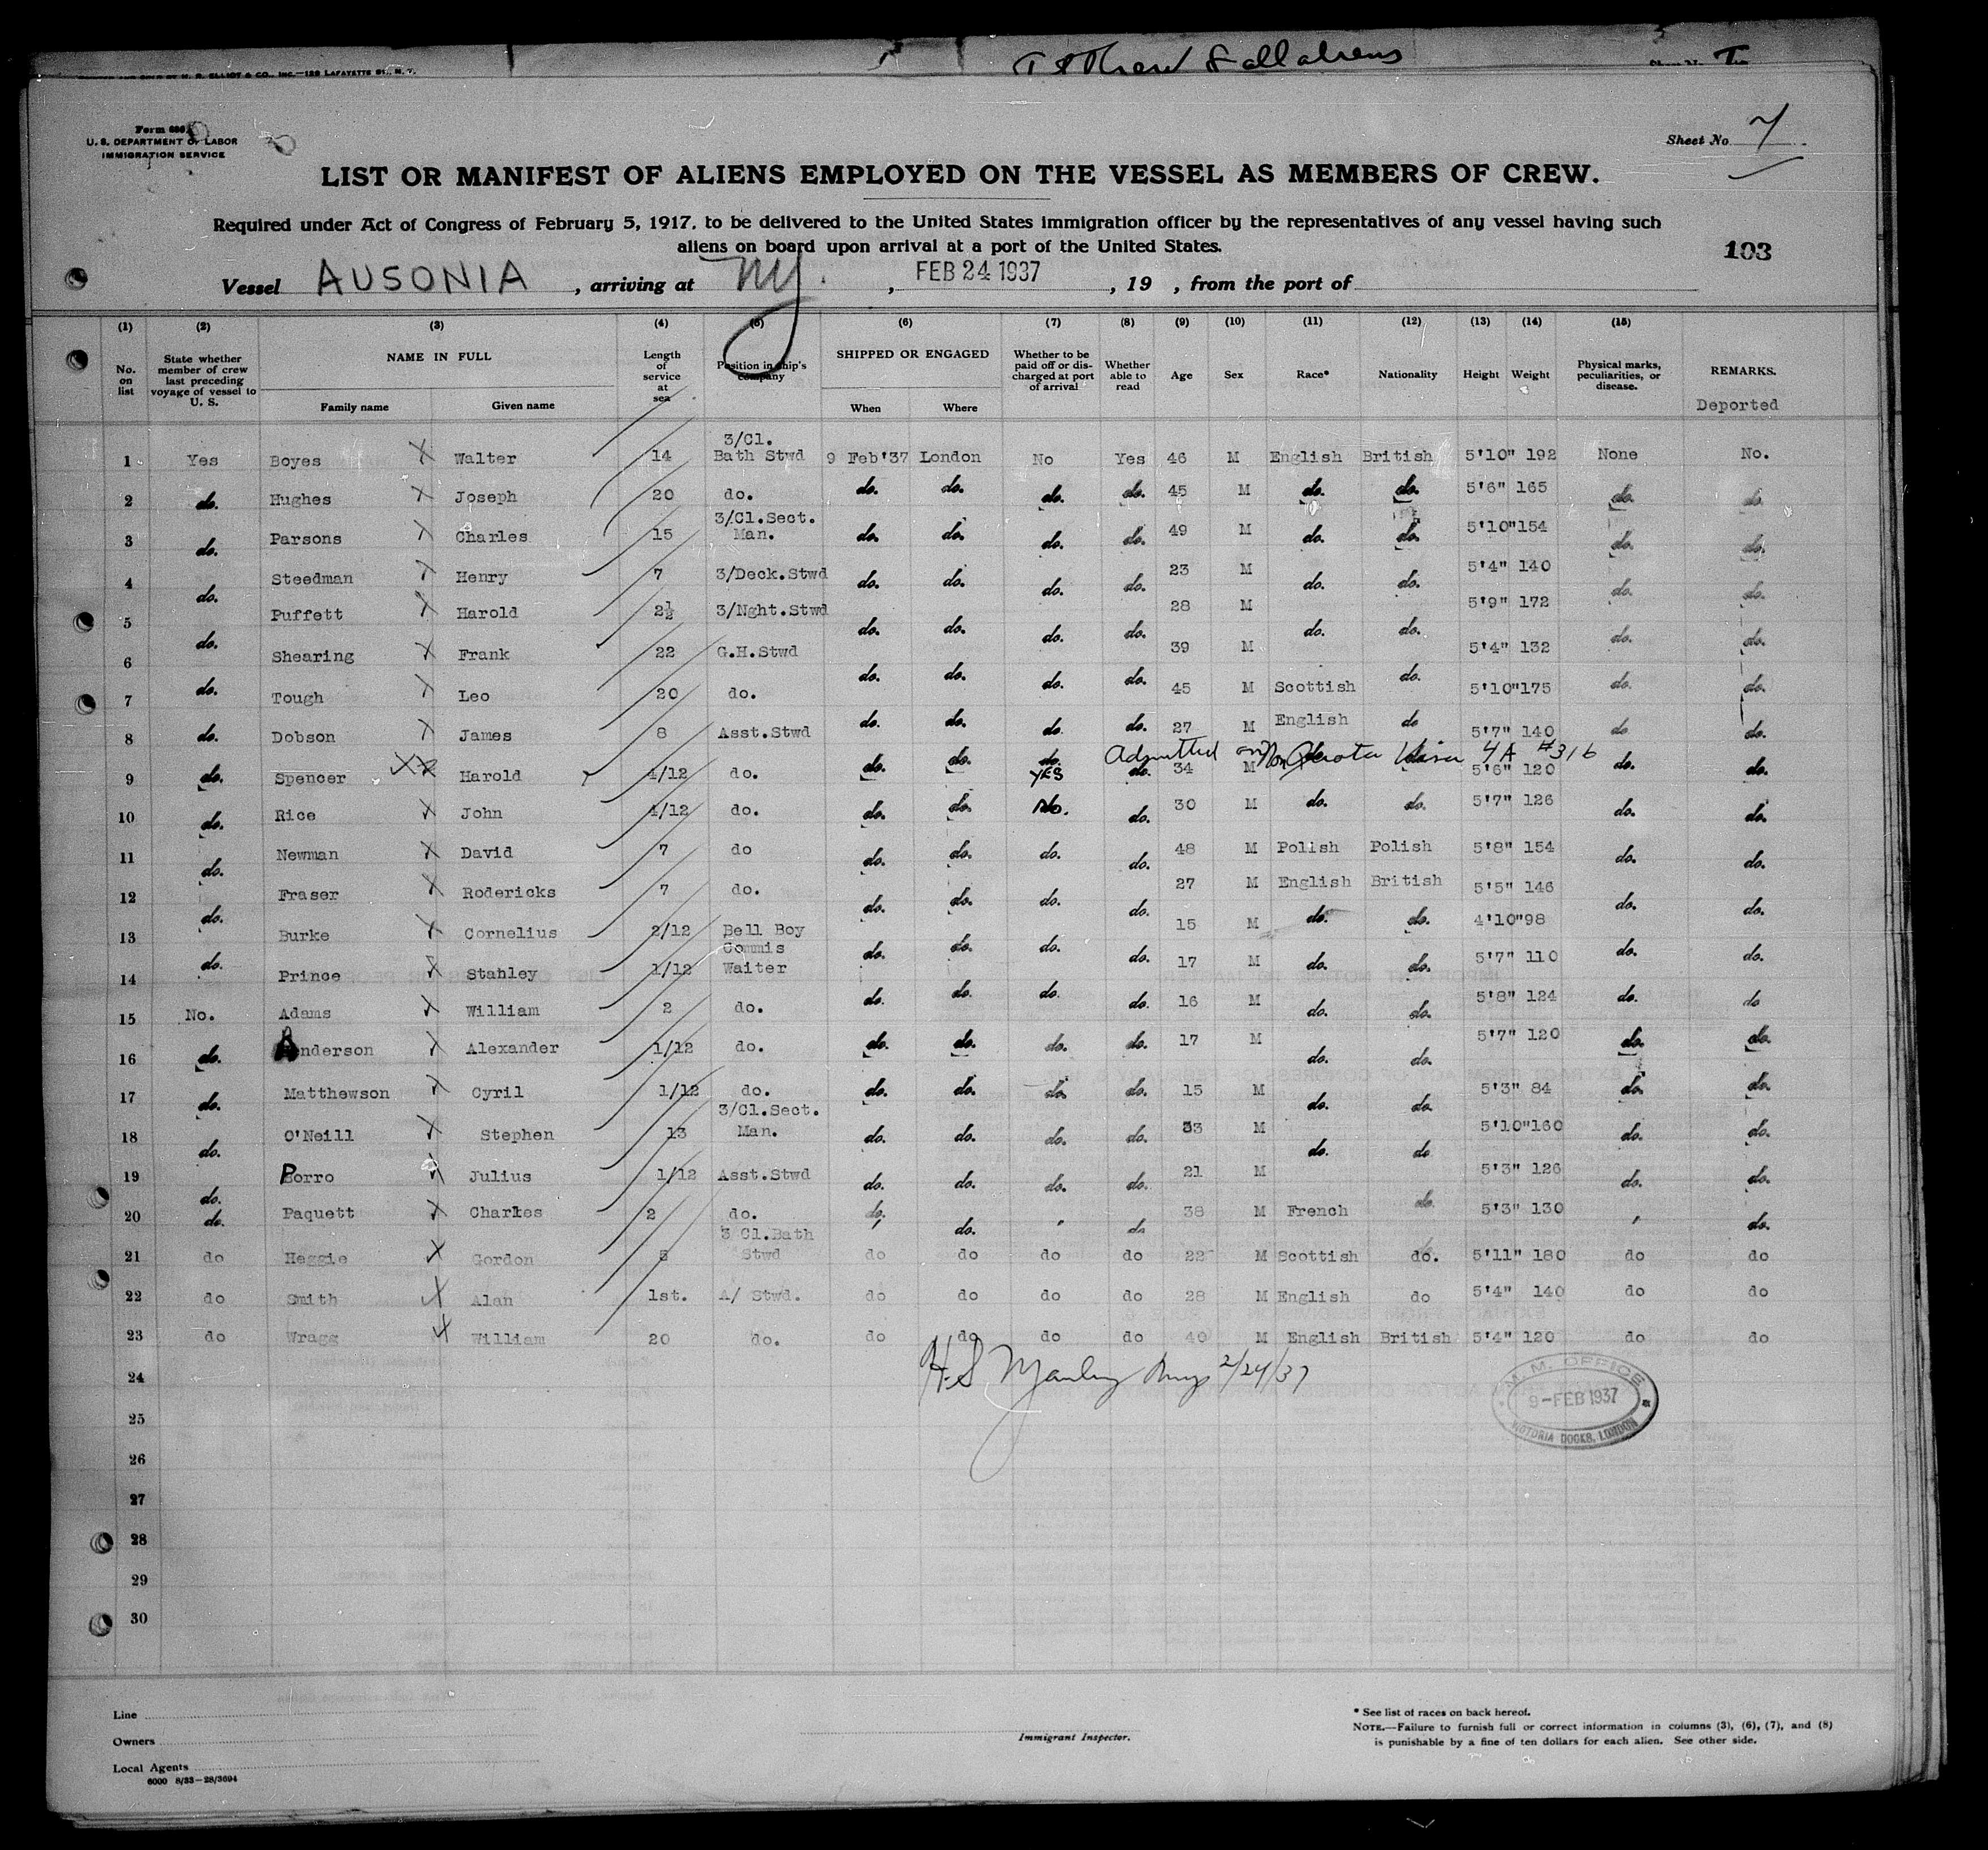 AND SOLD BY H. R. ELLIOT & CO., INC.—129 LAFAYETTE ST., N. Y.
Form 680
U. S. DEPARTMENT OF LABOR
IMMIGRATION SERVICE
Sheet No. 7
LIST OR MANIFEST OF ALIENS EMPLOYED ON THE VESSEL AS MEMBERS OF CREW.
Required under Act of Congress of February 5, 1917, to be delivered to the United States immigration officer by the representatives of any vessel having such
aliens on board upon arrival at a port of the United States.
103
Vessel AUSONIA, arriving at NY., FEB 24 1937, 19 , from the port of
(1) (2) (3) (4) (5) (6) (7) (8) (9) (10) (11) (12) (13) (14) (15)
No. on list State whether member of crew last preceding voyage of vessel to U. S. NAME IN FULL Family name Given name Length of service at sea Position in ship's company SHIPPED OR ENGAGED When Where Whether to be paid off or discharged at port of arrival Whether able to read Age Sex Race* Nationality Height Weight Physical marks, peculiarities, or disease. REMARKS. Deported
1 Yes Boyes X Walter 14 3/Cl. Bath Stwd 9 Feb'37 London No Yes 46 M English British 5'10" 192 None No.
2 do. Hughes X Joseph 20 do. do. do. do. do. 45 M do. do. 5'6" 165 do. do.
3 do. Parsons X Charles 15 3/Cl.Sect. Man. do. do. do. do. 49 M do. do. 5'10" 154 do. do.
4 do. Steedman X Henry 7 3/Deck.Stwd do. do. do. do. 23 M do. do. 5'4" 140 do. do.
5 do. Puffett X Harold 2½ 3/Nght.Stwd do. do. do. do. 28 M do. do. 5'9" 172 do. do.
6 do. Shearing X Frank 22 G.H.Stwd do. do. do. do. 39 M do. 5'4" 132 do. do.
7 do. Tough X Leo 20 do. do. do. do. do. 45 M Scottish 5'10" 175 do. do.
8 do. Dobson X James 8 Asst.Stwd do. do. do. do. 27 M English do 5'7" 140 do do.
Admitted on Non Quota Visa 4A #316
9 do. Spencer XX Harold 4/12 do. do. do. do. YES do. 34 M do. do. 5'6" 120 do. do.
10 do. Rice X John 4/12 do. do. do. No. do. 30 M do. do. 5'7" 126 do. do.
11 do. Newman X David 7 do do. do. do. do. 48 M Polish Polish 5'8" 154 do. do.
12 do. Fraser X Rodericks 7 do. do. do. do. do. 27 M English British 5'5" 146 do. do.
13 do. Burke X Cornelius 2/12 Bell Boy do. do. do. do. 15 M do. do. 4'10" 98 do. do.
14 Prince X Stanley 1/12 Commis Waiter do. do. do. do. 17 M do. do. 5'7" 110 do. do
15 No. Adams X William 2 do. 16 M do. do. 5'8" 124
16 do. Anderson X Alexander 1/12 do. do. do. do. do. 17 M do. do. 5'7" 120 do. do.
17 do. Matthewson X Cyril 1/12 do. do. do. do. do. 15 M do. do. 5'3" 84 do. do.
18 do. O'Neill X Stephen 13 3/Cl.Sect. Man. do. do. do. do. 33 M do. do 5'10" 160 do. do.
19 do. Porro X Julius 1/12 Asst.Stwd do. do. do. do. 21 M 5'3" 126 do. do.
20 do. Paquett X Charles 2 do. do. do. do. 38 M French do. 5'3" 130 do.
21 do Heggie X Gordon 5 3 Cl.Bath Stwd do do do do 22 M Scottish do. 5'11" 180 do do
22 do Smith X Alan 1st. A/ Stwd. do do do do 28 M English do 5'4" 140 do do
23 do Wragg X William 20 do. do do do do 40 M English British 5'4" 120 do do
24
2/24/37
M.M. OFFICE
9-FEB 1937
VICTORIA DOCKS, LONDON
25
26
27
28
29
30
Line
Owners
Local Agents
6000 8/33—28/3694
Immigrant Inspector.
* See list of races on back hereof.
NOTE.—Failure to furnish full or correct information in columns (3), (6), (7), and (8)
is punishable by a fine of ten dollars for each alien. See other side.